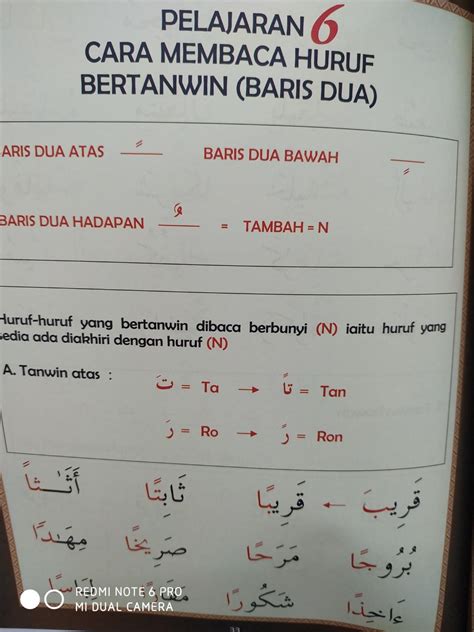 PELAJARAN 6
CARA MEMBACA HURUF
BERTANWIN (BARIS DUA)
ARIS DUA ATAS ـًـ BARIS DUA BAWAH ـٍـ
BARIS DUA HADAPAN ـٌـ = TAMBAH = N
Huruf-huruf yang bertanwin dibaca berbunyi (N) iaitu huruf yang
sedia ada diakhiri dengan huruf (N)
A. Tanwin atas :
تَ = Ta → تاً = Tan
رَ = Ro → رً = Ron
قَرِيبَ ← قَرِيبًا ثَابِتًا أَثَـٰـثاً
بُرُوجًا مَرَحًا صَرِيخًا مِهَـٰدًا
ءَاخِذًا شَكُورًا لِبَاسًا
REDMI NOTE 6 PRO
MI DUAL CAMERA
33